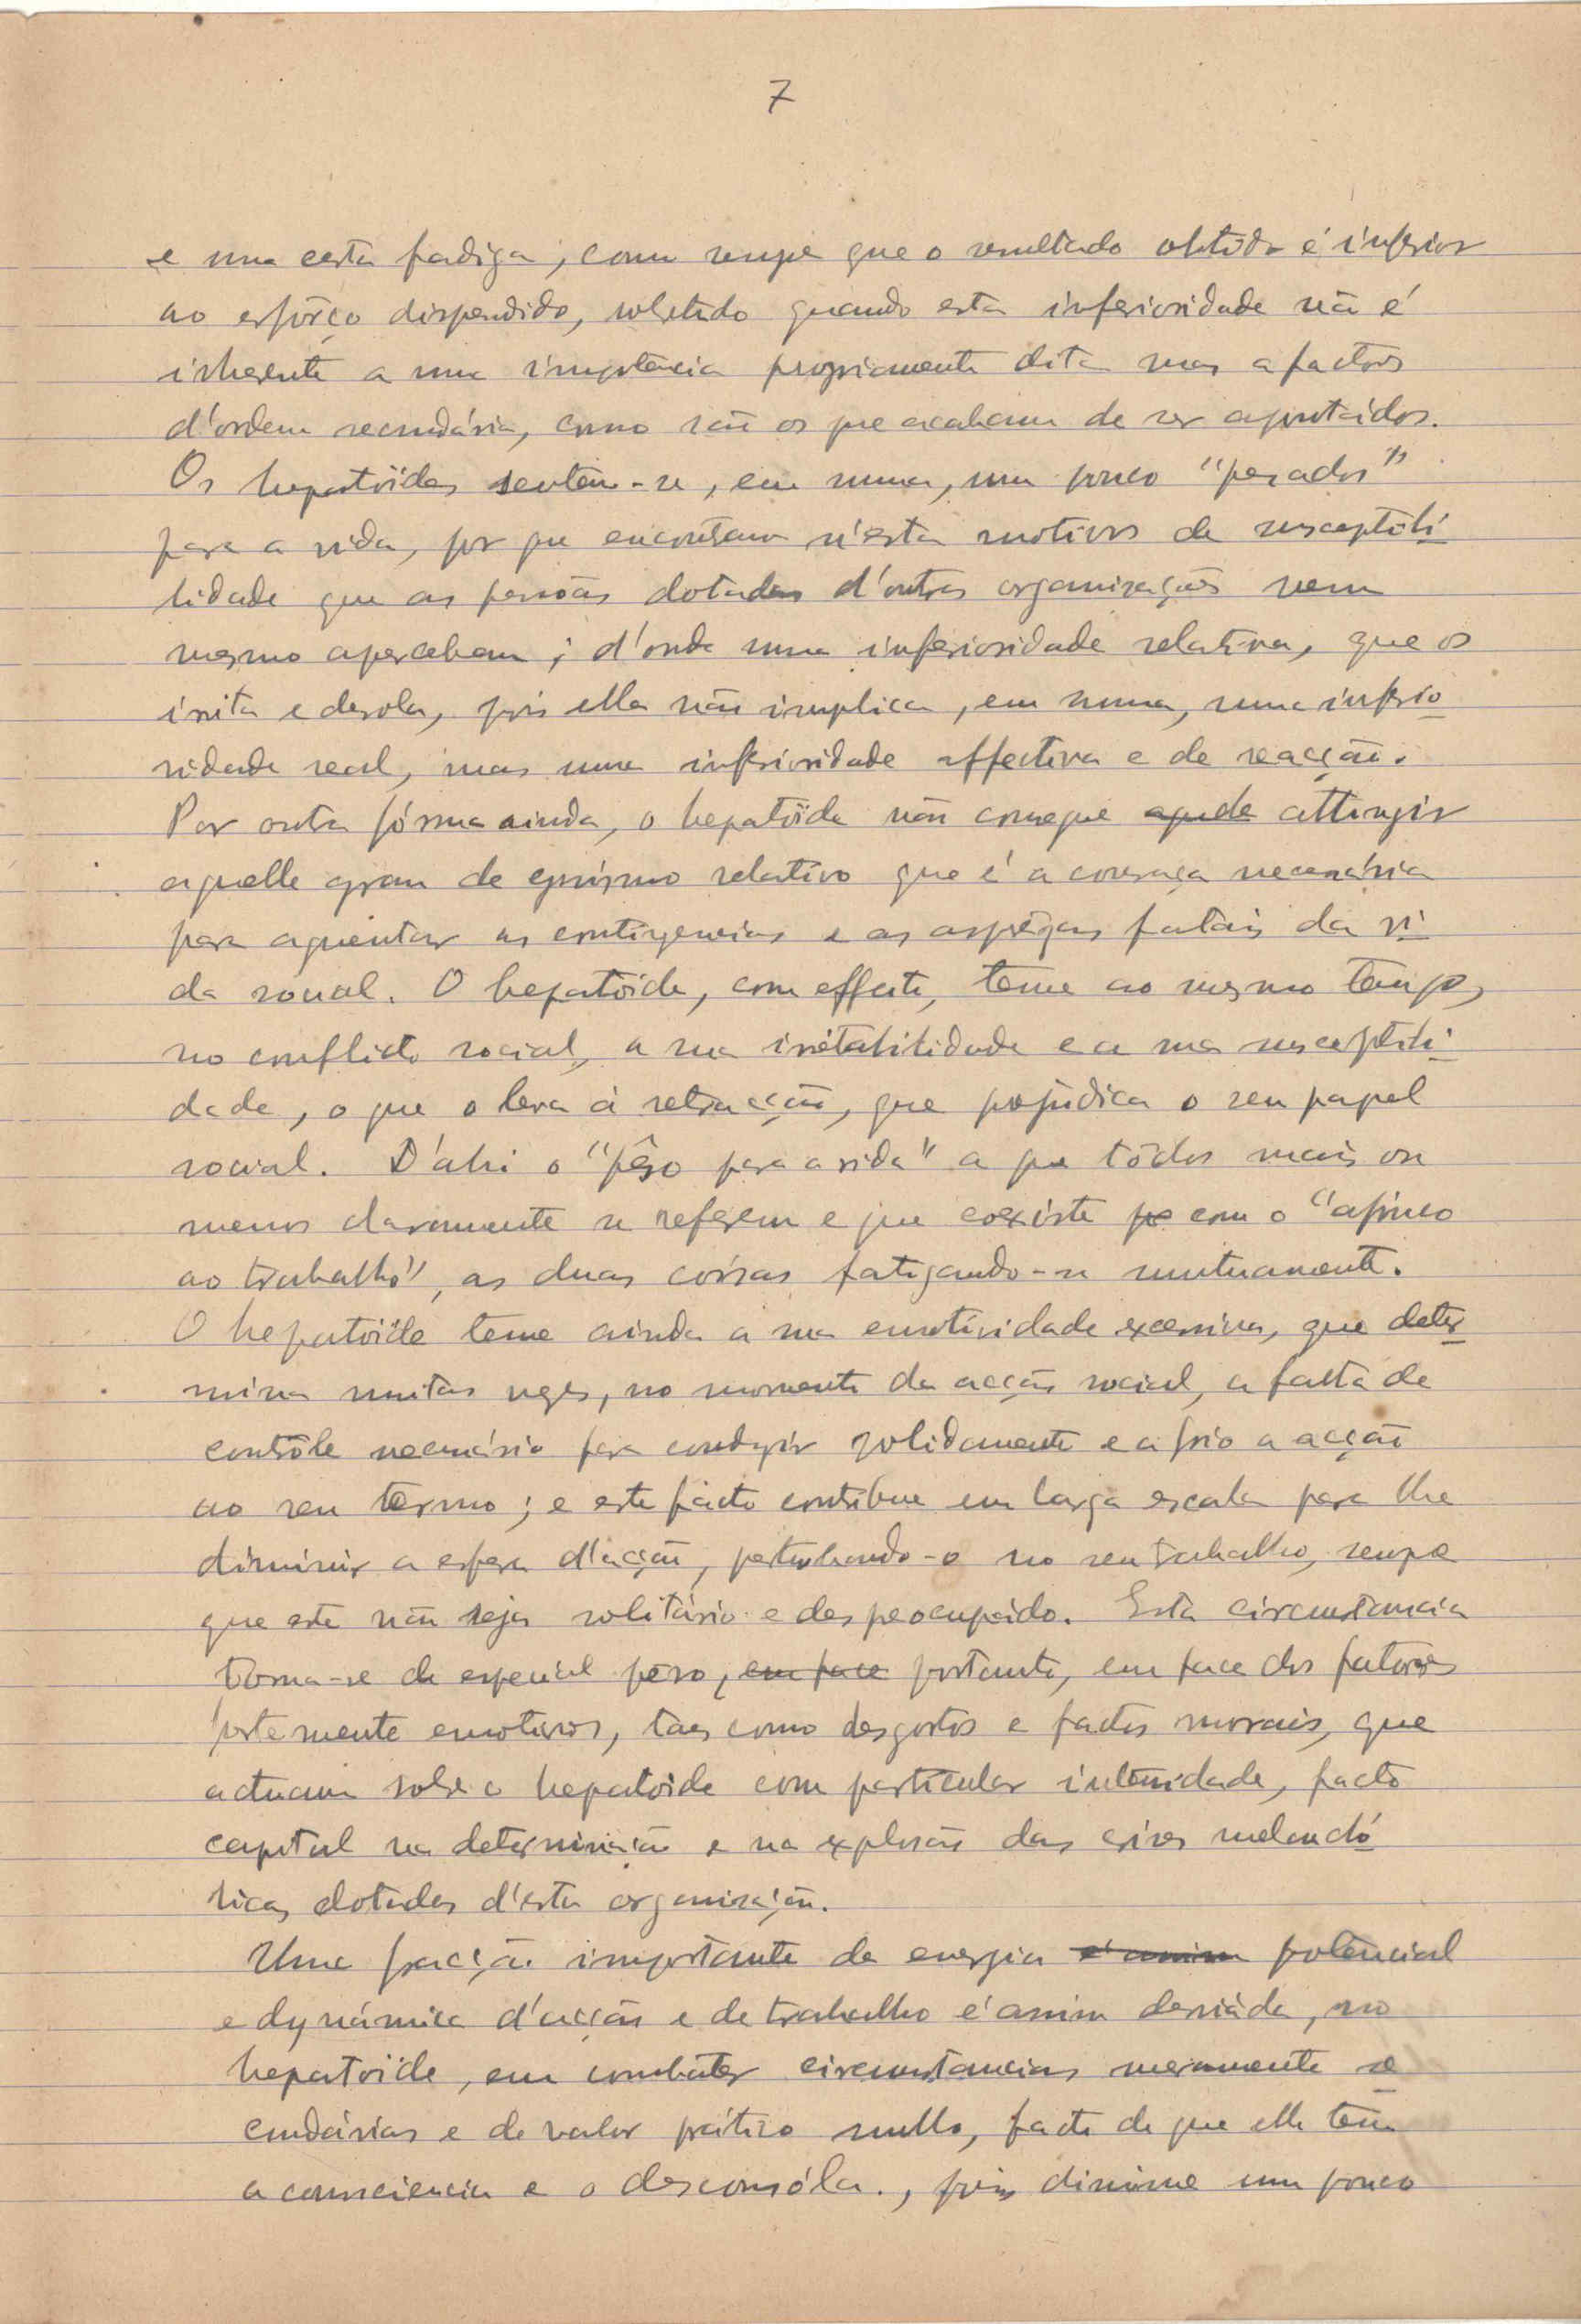 7
e uma certa fadiga, como sempre que o resultado obtido é inferior
ao esfôrço dispendido, sobretudo quando esta inferioridade não é
inherente a uma impotencia propriamente dita mas a factores
d'ordem secundária, como são os que acabam de ser apontados.
Os hepatöides sentem-se, em suma, um pouco "pesados"
para a vida, por que encontram n'esta motivos de susceptibi
lidade que as pessôas dotadas d'outras organizações nem
mesmo apercebem; d'onde uma inferioridade relativa, que os
irrita e desola, pois ella não implica, em suma, uma inferio
ridade real, mas uma inferioridade affectiva e de reacção.
Por outra fórma ainda, o hepatöide não consegue aquele attingir
aquelle grau de egoismo relativo que é a couraça necessária
para aguentar as contingencias e as asperezas fatais da vi
da social. O hepatöide, com effeito, teme ao mesmo tempo,
no conflicto social, a sua irritabilidade e a sua susceptibili
dade, o que o leva á retracção, que prejudica o seu papel
social. D'ahi o "pêso para a vida" a que tôdos mais ou
menos claramente se referem e que coexiste com o "afinco
ao trabalho", as duas coisas fatigando-se mutuamente.
O hepatöide teme ainda a sua emotividade excessiva, que deter
mina muitas vezes, no momento da acção social, a falta de
contrôle necessário para conduzir solidamente e a frio a acção
ao seu termo; e este facto contribue em larga escala para lhe
diminuir a esfera d'acção, perturbando-o no seu trabalho, sempre
que este não seja solitário e despreocupado. Esta circumstancia
torna-se de especial pêso, em face portanto, em face dos fatores
fortemente emotivos, taes como desgostos e factos morais, que
actuam sobre o hepatoide com particular intensidade, facto
capital na determinação e na explosão das crises melancó
licas dotadas d'esta organisação.
Uma fracção importante da energia é assim potencial
e dynámica d'acção e de trabalho é assim desviada, no
hepatöide, em combater circumstancias meramente se
cundárias e de valor prático nullo, facto de que elle tem
a consciencia e o desconsóla., pois diminue um pouco